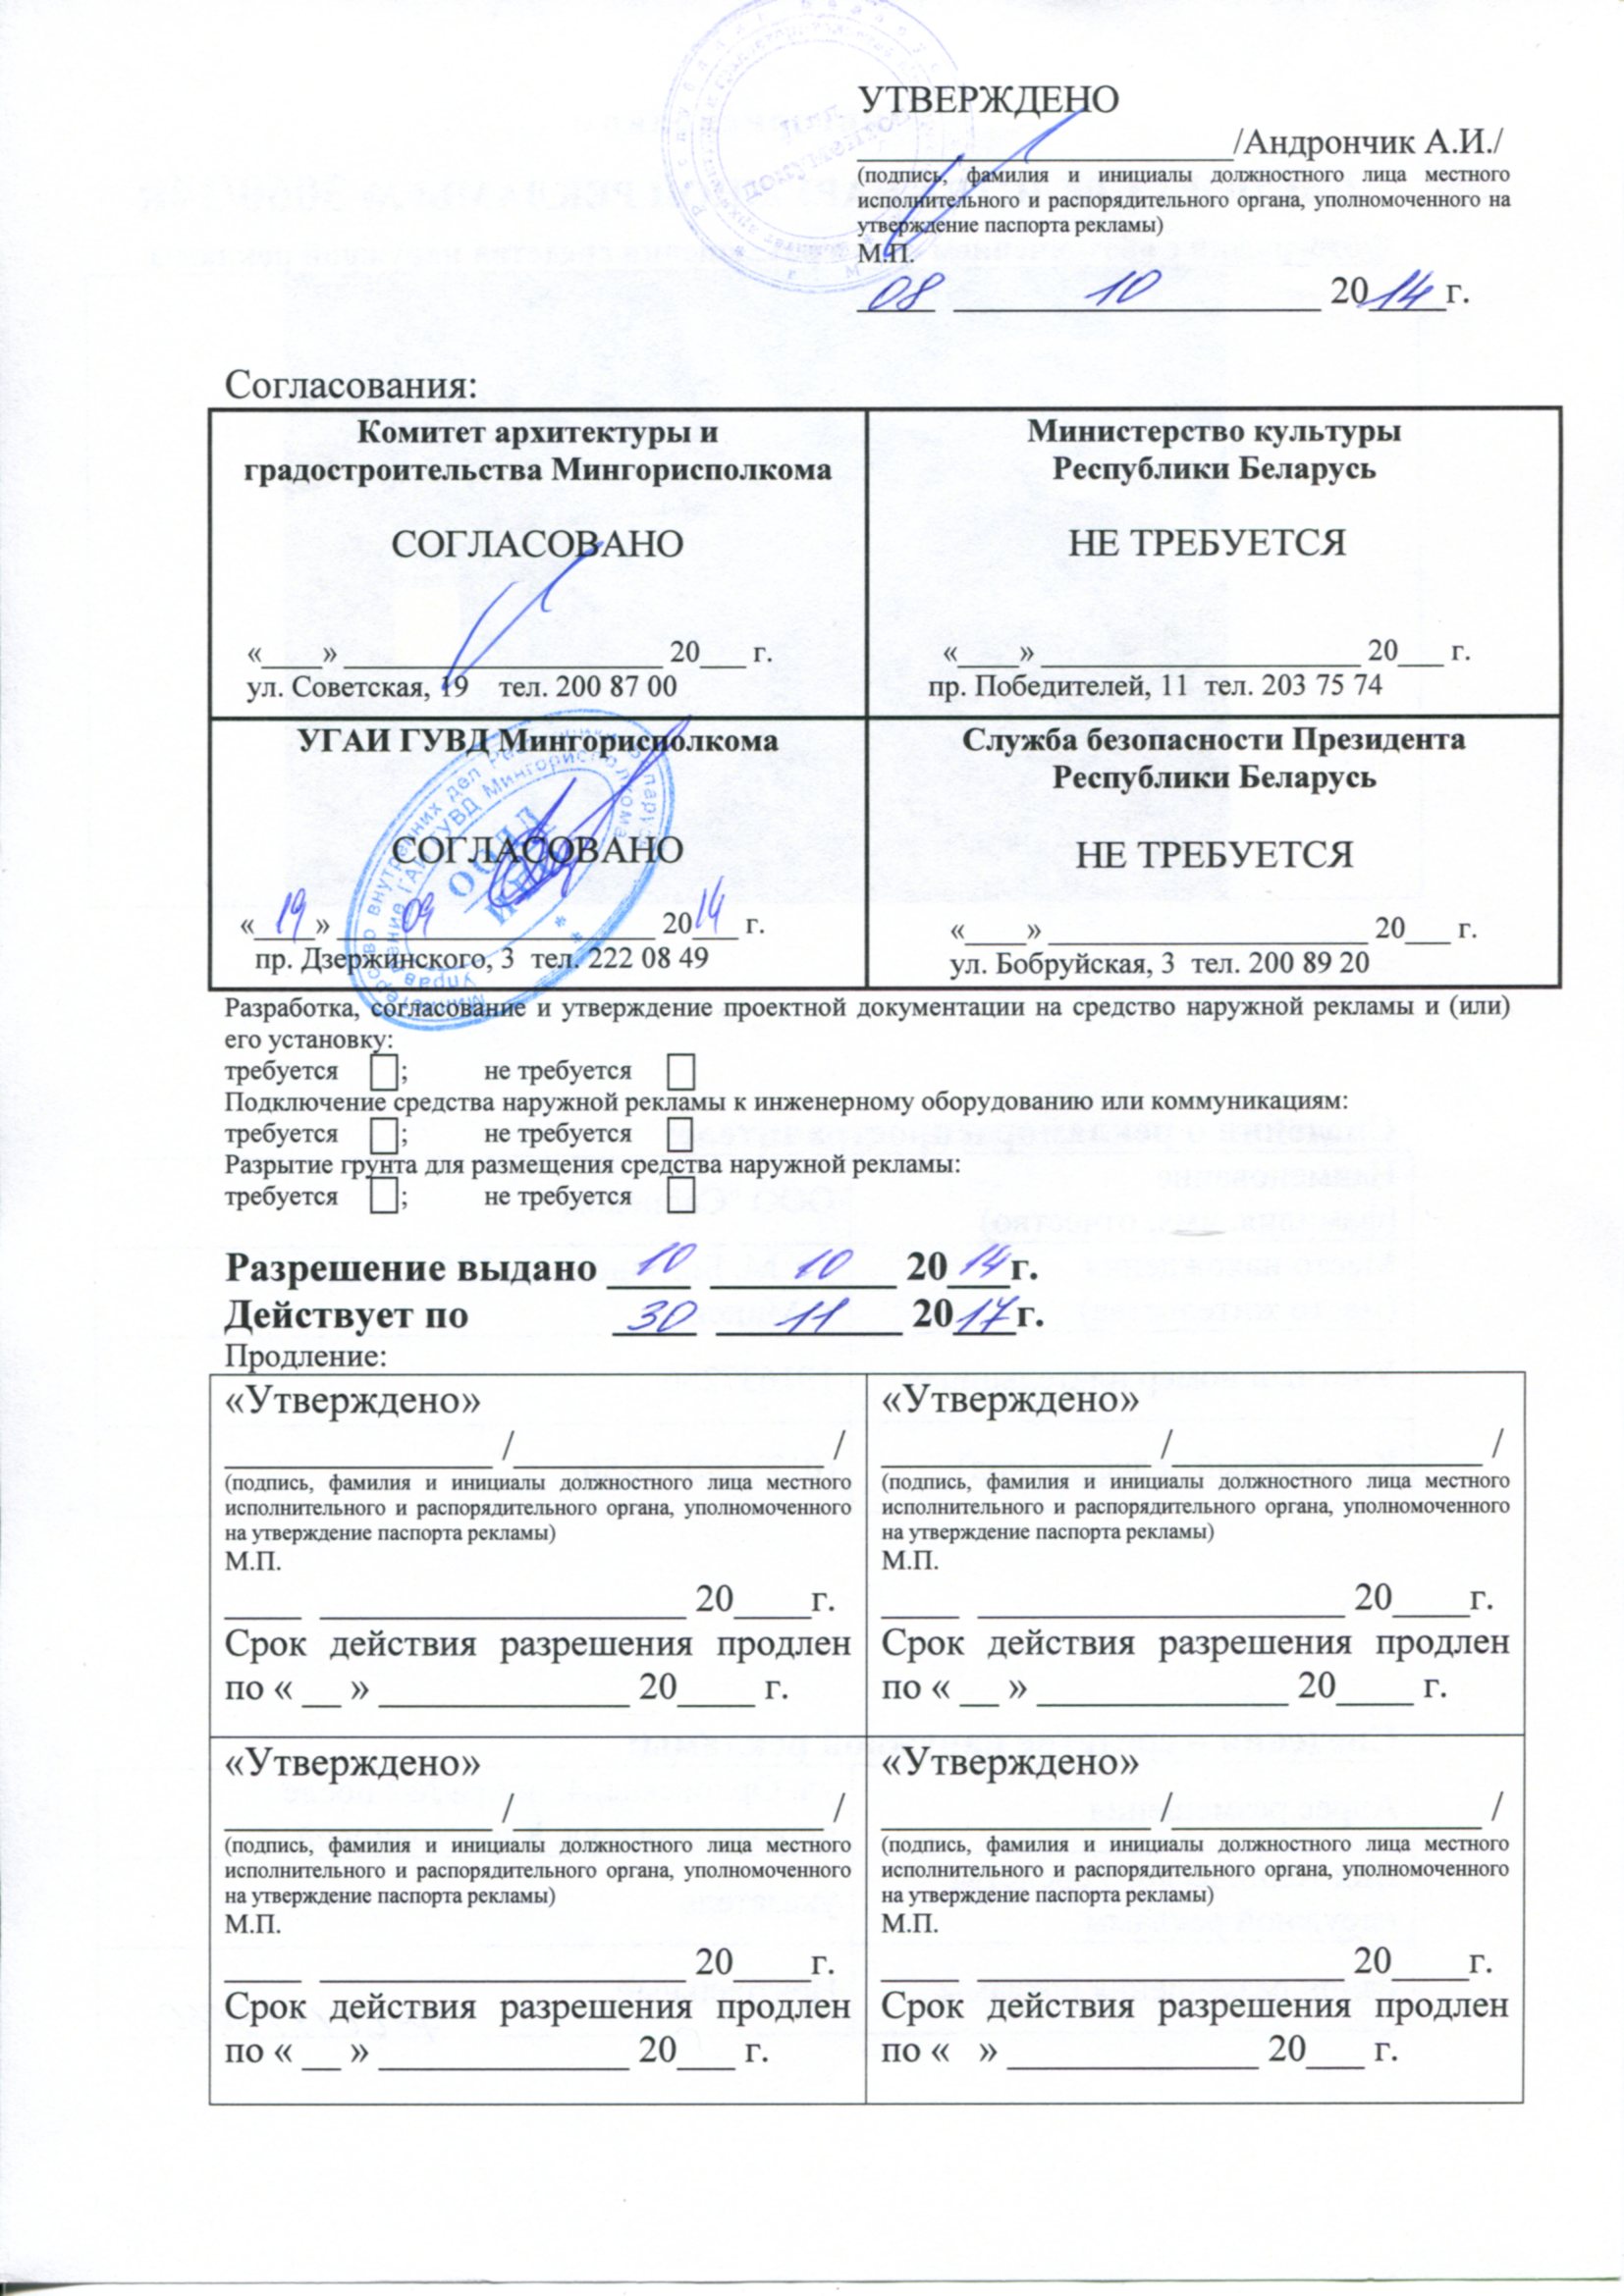 УТВЕРЖДЕНО
____________________/Андрончик А.И./
(подпись, фамилия и инициалы должностного лица местного
исполнительного и распорядительного органа, уполномоченного на
утверждение паспорта рекламы)
М.П.
08 10 2014г.
Согласования:
Комитет архитектуры и
градостроительства Мингорисполкома
СОГЛАСОВАНО
«____» _____________________ 20___ г.
ул. Советская, 19 тел. 200 87 00
Министерство культуры
Республики Беларусь
НЕ ТРЕБУЕТСЯ
«____» _____________________ 20___ г.
пр. Победителей, 11 тел. 203 75 74
УГАИ ГУВД Мингорисполкома
СОГЛАСОВАНО
«19» 09 2014 г.
пр. Дзержинского, 3 тел. 222 08 49
Служба безопасности Президента
Республики Беларусь
НЕ ТРЕБУЕТСЯ
«____» _____________________ 20___ г.
ул. Бобруйская, 3 тел. 200 89 20
Разработка, согласование и утверждение проектной документации на средство наружной рекламы и (или)
его установку:
требуется ; не требуется
Подключение средства наружной рекламы к инженерному оборудованию или коммуникациям:
требуется ; не требуется
Разрытие грунта для размещения средства наружной рекламы:
требуется ; не требуется
Разрешение выдано 10 10 2014г.
Действует по 30 11 2017г.
Продление:
«Утверждено»
______________ /________________ /
(подпись, фамилия и инициалы должностного лица местного
исполнительного и распорядительного органа, уполномоченного
на утверждение паспорта рекламы)
М.П.
____ ___________________ 20____г.
Срок действия разрешения продлен
по « __ » _____________ 20____ г.
«Утверждено»
______________ /________________ /
(подпись, фамилия и инициалы должностного лица местного
исполнительного и распорядительного органа, уполномоченного
на утверждение паспорта рекламы)
М.П.
____ ___________________ 20____г.
Срок действия разрешения продлен
по « __ » _____________ 20____ г.
«Утверждено»
______________ /________________ /
(подпись, фамилия и инициалы должностного лица местного
исполнительного и распорядительного органа, уполномоченного
на утверждение паспорта рекламы)
М.П.
____ ___________________ 20____г.
Срок действия разрешения продлен
по « __ » _____________ 20___ г.
«Утверждено»
______________ /________________ /
(подпись, фамилия и инициалы должностного лица местного
исполнительного и распорядительного органа, уполномоченного
на утверждение паспорта рекламы)
М.П.
____ ___________________ 20____г.
Срок действия разрешения продлен
по « » _____________ 20___ г.